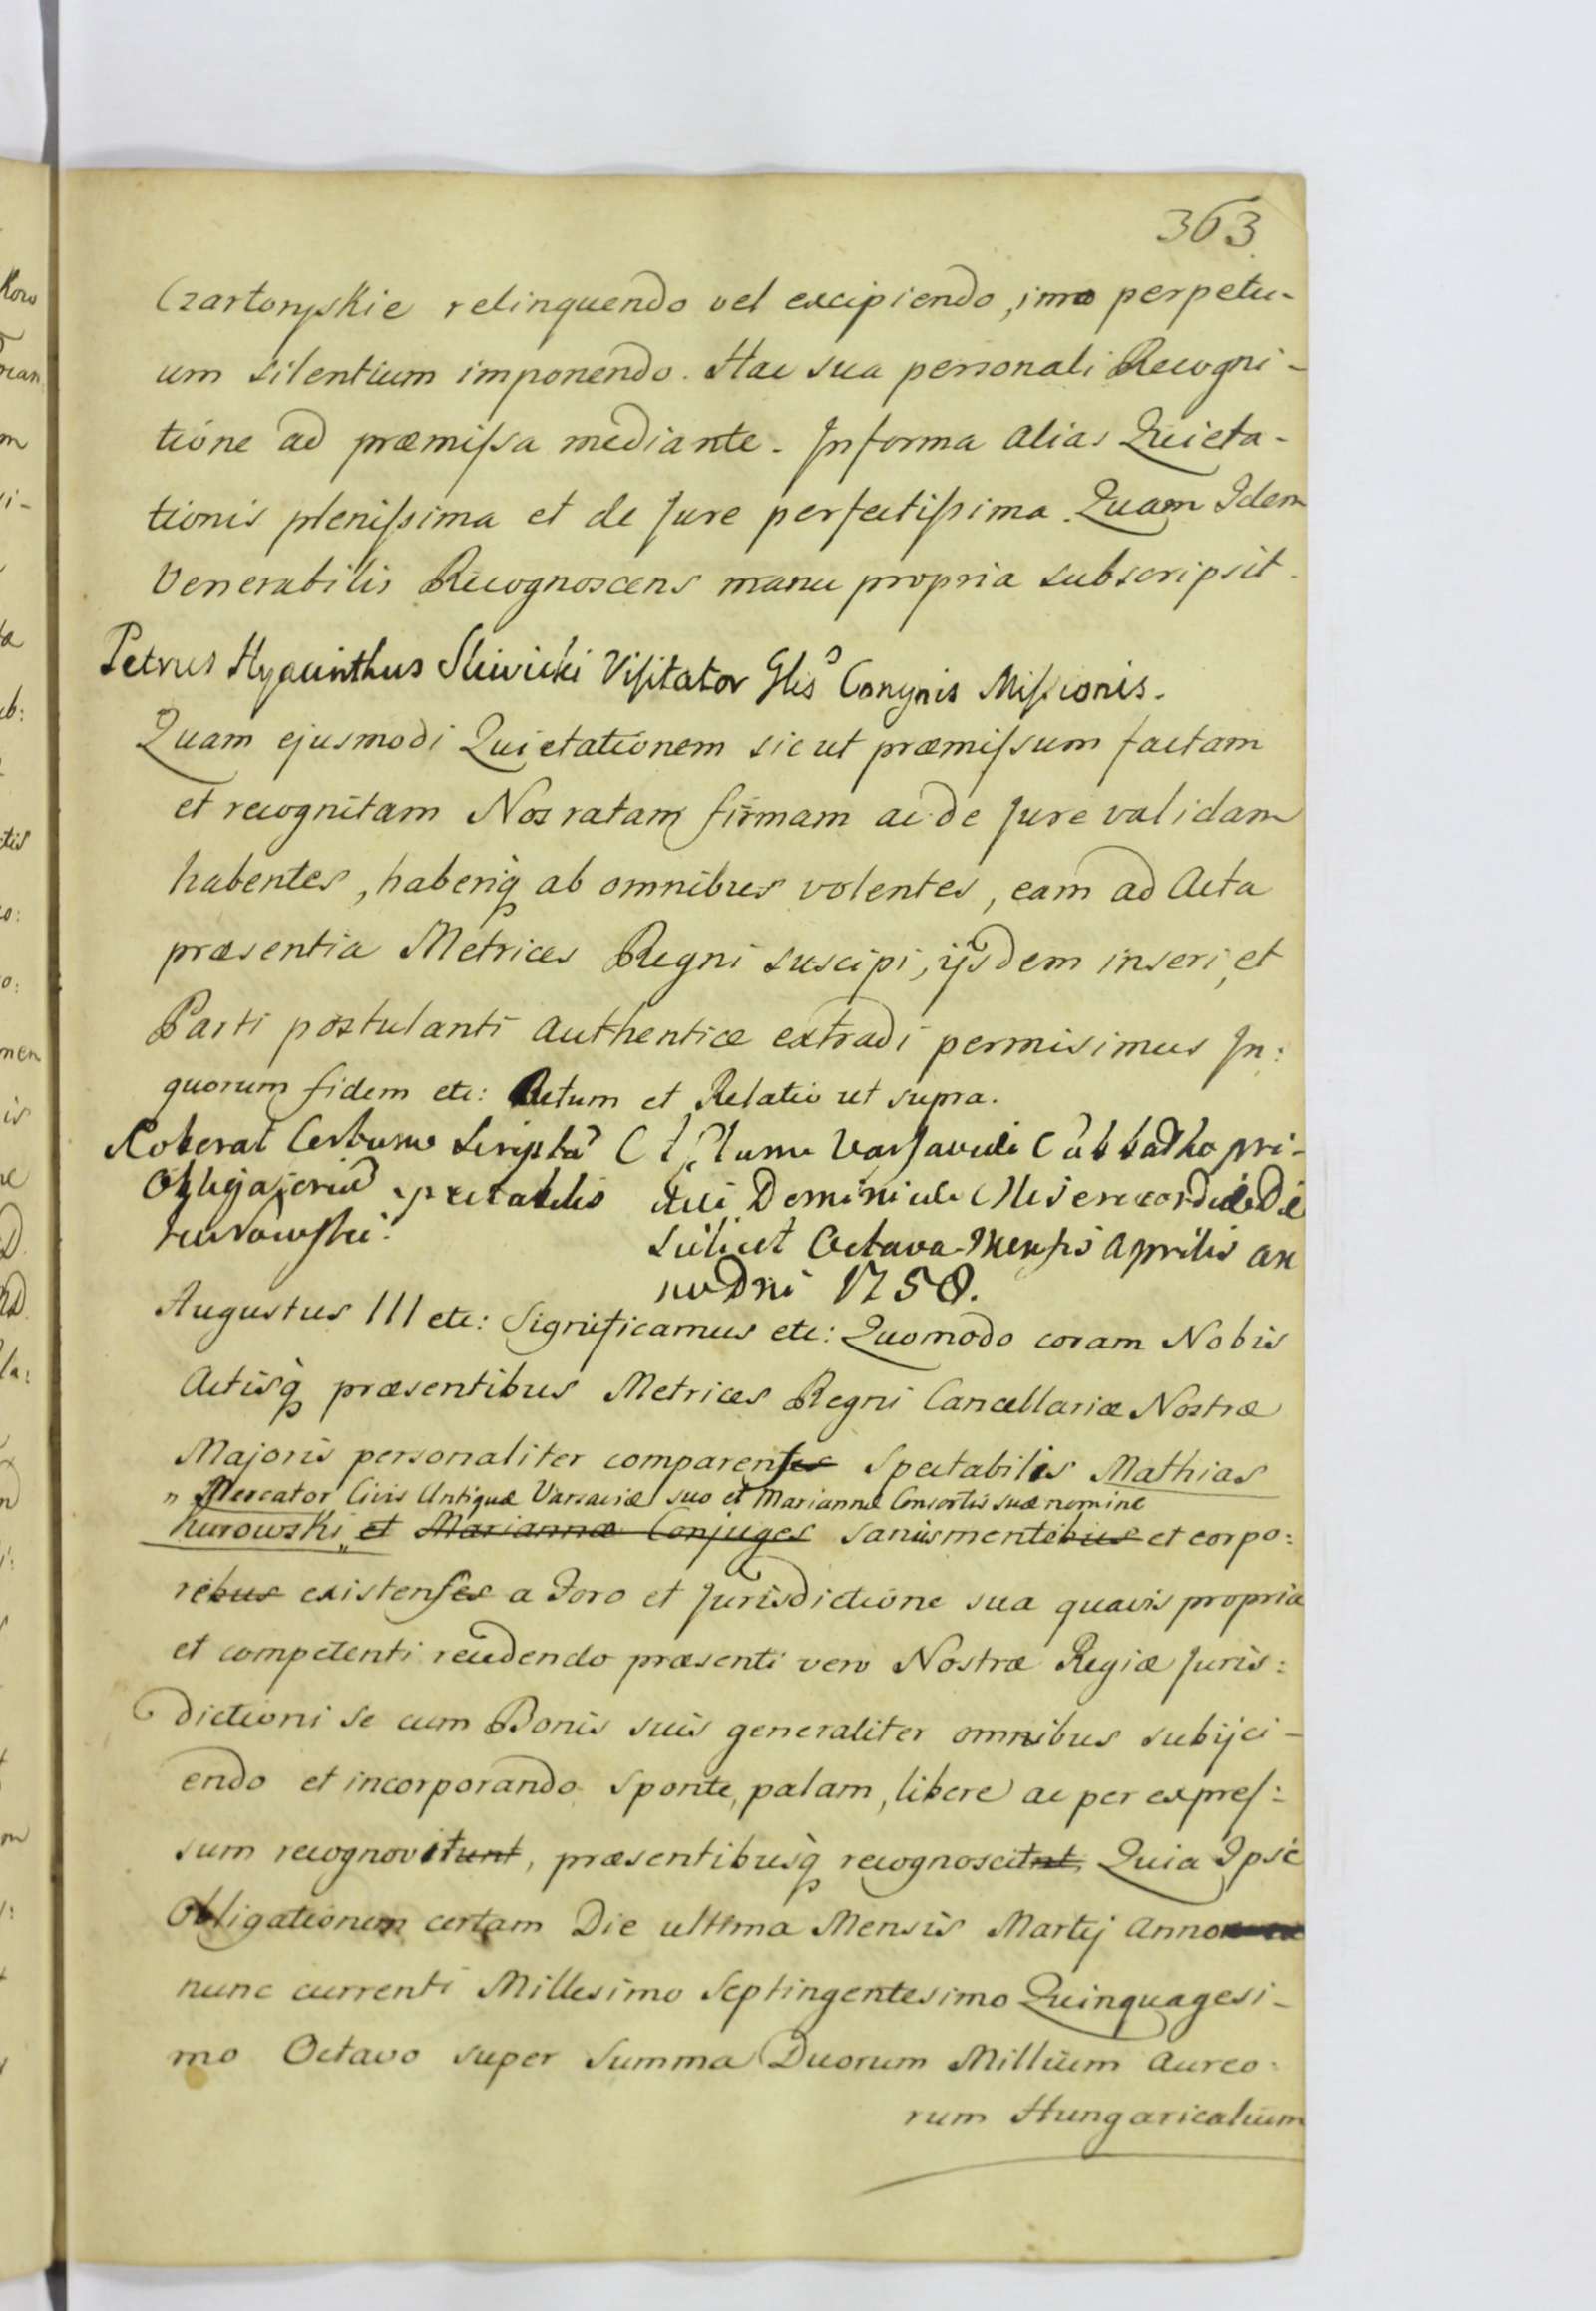 363
Czartoryskie relinquendo vel excipiendo, imo perpetu-
um silentium imponendo. Hac sua personali Recogni-
tione ad præmissa mediante. In forma alias Quieta-
tionis plenissima et de Jure perfectissima. Quam Idem
Venerabilis Recognoscens manu propria subscripsit.
Petrus Hyacinthus Sliwicki Visitator Glis Congnis Missionis.
Quam ejusmodi Quietationem sicut præmissum factam
et recognitam Nos ratam firmam ac de Jure validam
habentes, haberiq ab omnibus volentes, eam ad Acta
præsentia Metrices Regni suscipi, ijsdem inseri, et
Parti postulanti authentice extradi permisimus In:
quorum fidem etc: Actum et Relatio ut supra.
Roborat Certum Scriptu
Obligatoriu Spectabilis
Kurowski.
Actum Varsaviæ Sabbatho pri-
die Dominicæ Misericordiæ Die
scilicet Octava Mensis Aprilis an
no Dni 1758.
Augustus III etc: Significamus etc: Quomodo coram Nobis
Actisq præsentibus Metrices Regni Cancellariæ Nostræ
Majoris personaliter comparens Spectabilis Mathias
" Mercator Civis Antiquæ Varsaviæ suo et Mariannæ Consortis suæ nomine
Kurowski " et Marianna Conjuges sanus mentebus et corpo:
rebus existenses a Foro et Jurisdictione sua quavis propria
et competenti recedendo præsenti vero Nostræ Regiæ Juris:
dictioni se cum Bonis suis generaliter omnibus subijci-
endo et incorporando sponte, palam, libere ac per expres:
sum recognovitunt, præsentibusq recognoscitnt Quia Ipse
Obligationem certam Die ultima Mensis Martij Anno
nunc currenti Millesimo Septingentesimo Quinquagesi-
mo Octavo super Summa Duorum Millium Aureo:
rum Hungaricalium